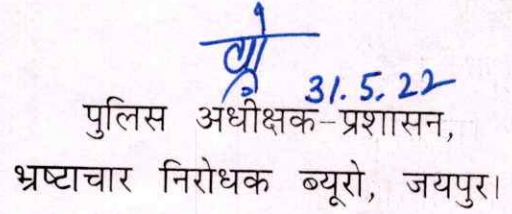 31.5.22
पुलिस अधीक्षक-प्रशासन,
भ्रष्टाचार निरोधक ब्यूरो, जयपुर।